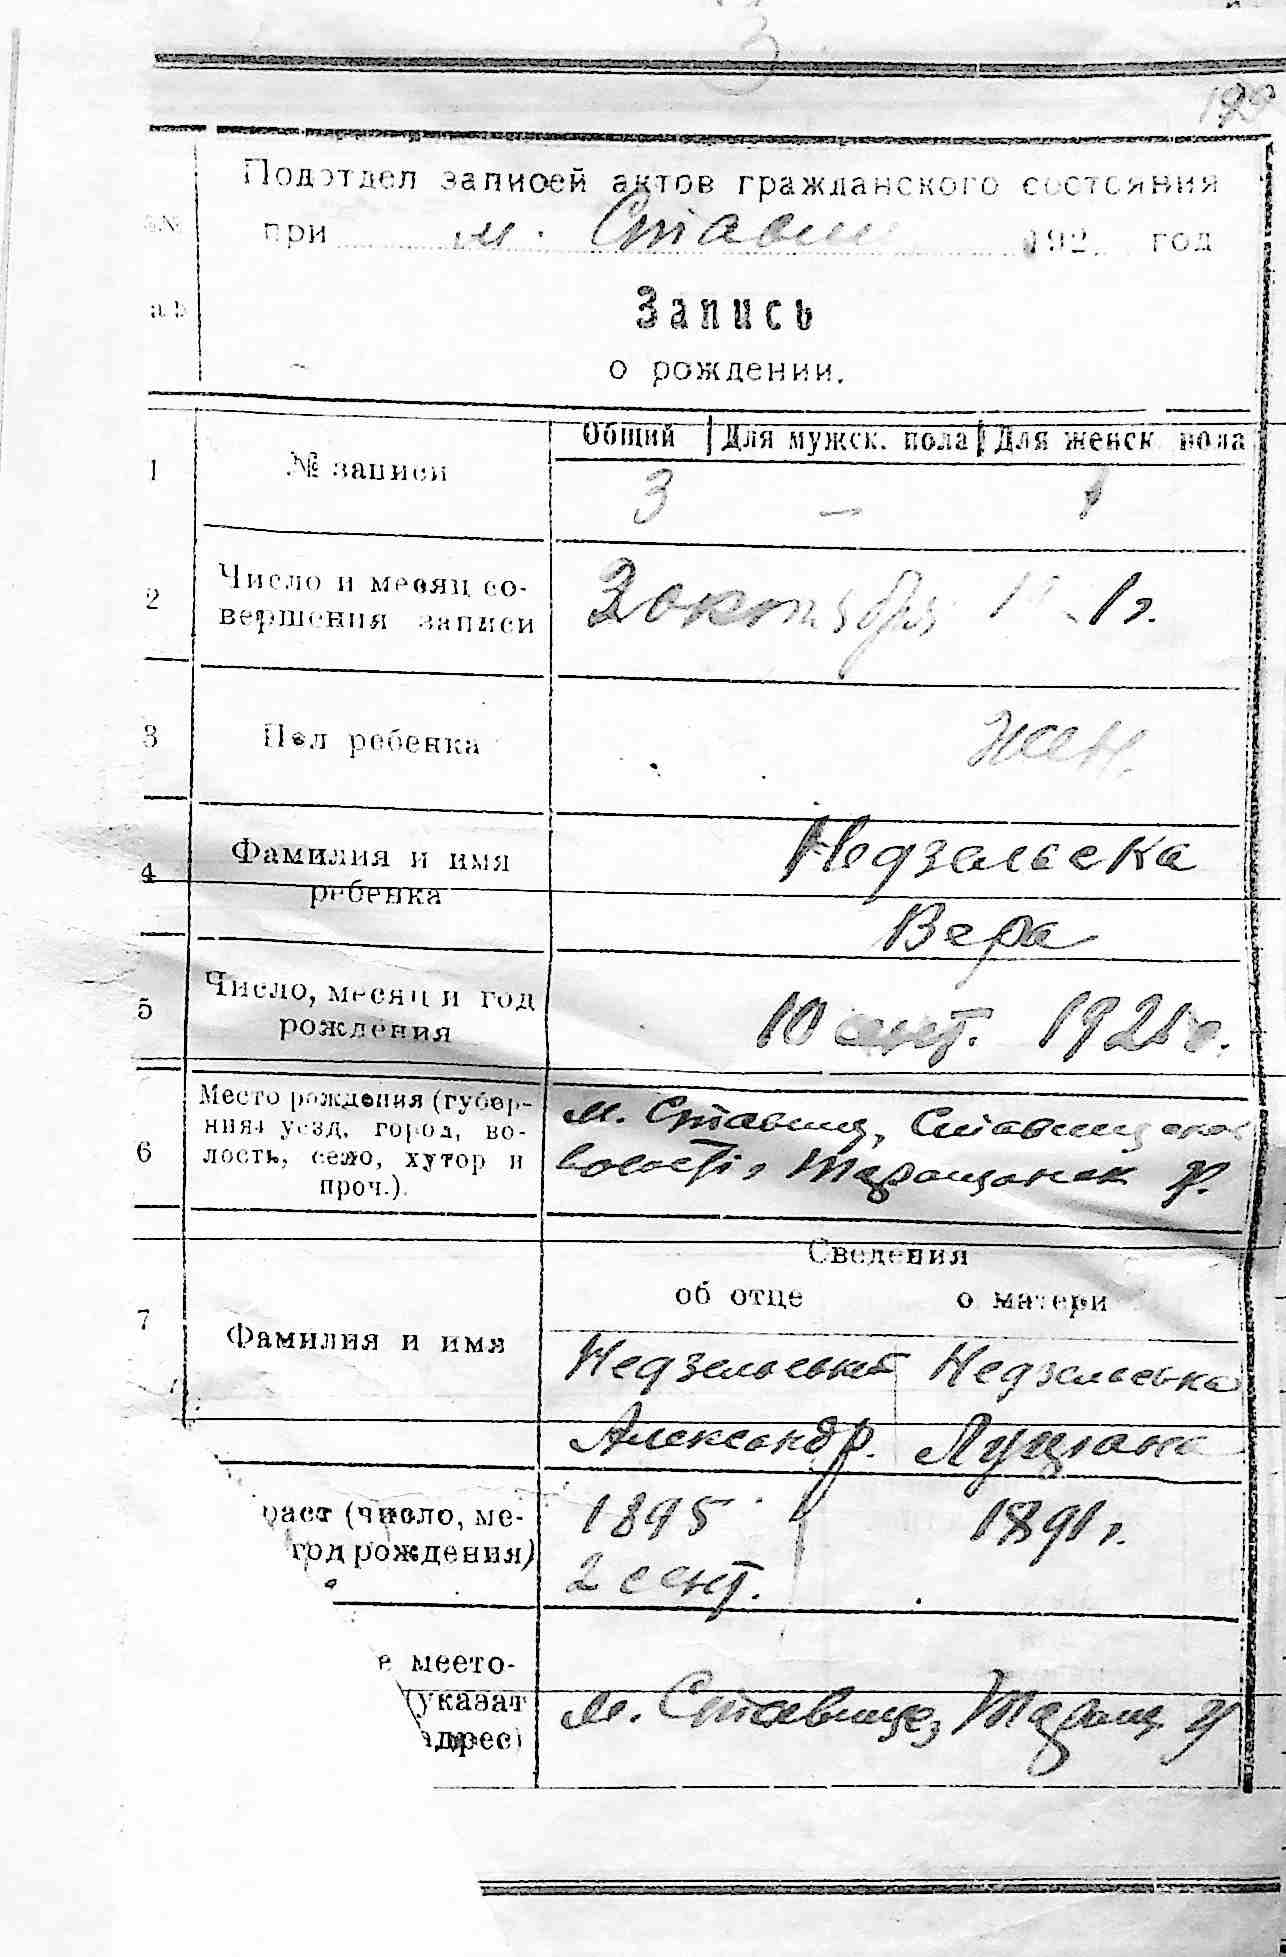 3
Подотдел записей актов гражданского состояния
при м. Стави 192 год
Запись
о рождении.
Общий Для мужск. пола Для женск. пола
1 № записи 3 — 1
2 Число и месяц со-
вершения записи
2 октября 1 1 г.
3 Пол ребенка жен.
4 Фамилия и имя
ребенка
Недзельска
Вера
5 Число, месяц и год
рождения
10 сент. 1921 г.
6 Место рождения (губер-
ния, уезд, город, во-
лость, село, хутор и
проч.).
м. Ставищ, Ставищ
волості, Таращанск у.
Сведения
об отце о матери
7 Фамилия и имя
Недзельский Недзельська
Александр.
раст (число, ме-
год рождения)
1895 1891 г.
2 сент.
е место-
(указат
адрес)
м. Ставище, Таращ у